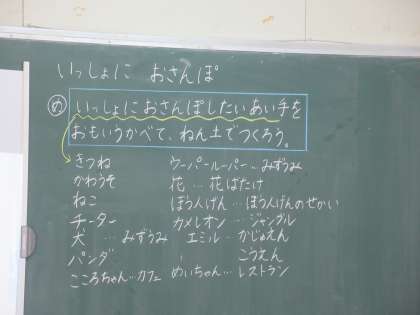 いっしょに おさんぽ
め いっしょにおさんぽしたいあい手を
おもいうかべて、ねん土でつくろう。
きつね ウーパールーパー…みずうみ
かわうそ 花…花ばたけ
ねこ ぼう人げん…ぼう人げんのせかい
チーター カメレオン…ジャングル
犬…みずうみ エミル…かじゅえん
パンダ こうえん
こころちゃん…カフェ めいちゃん…レストラン